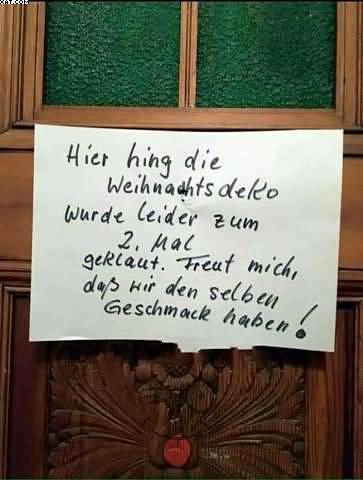 Hier hing die
Weihnachtsdeko
wurde leider zum
2. Mal
geklaut. Freut mich,
daß wir den selben
Geschmack haben!